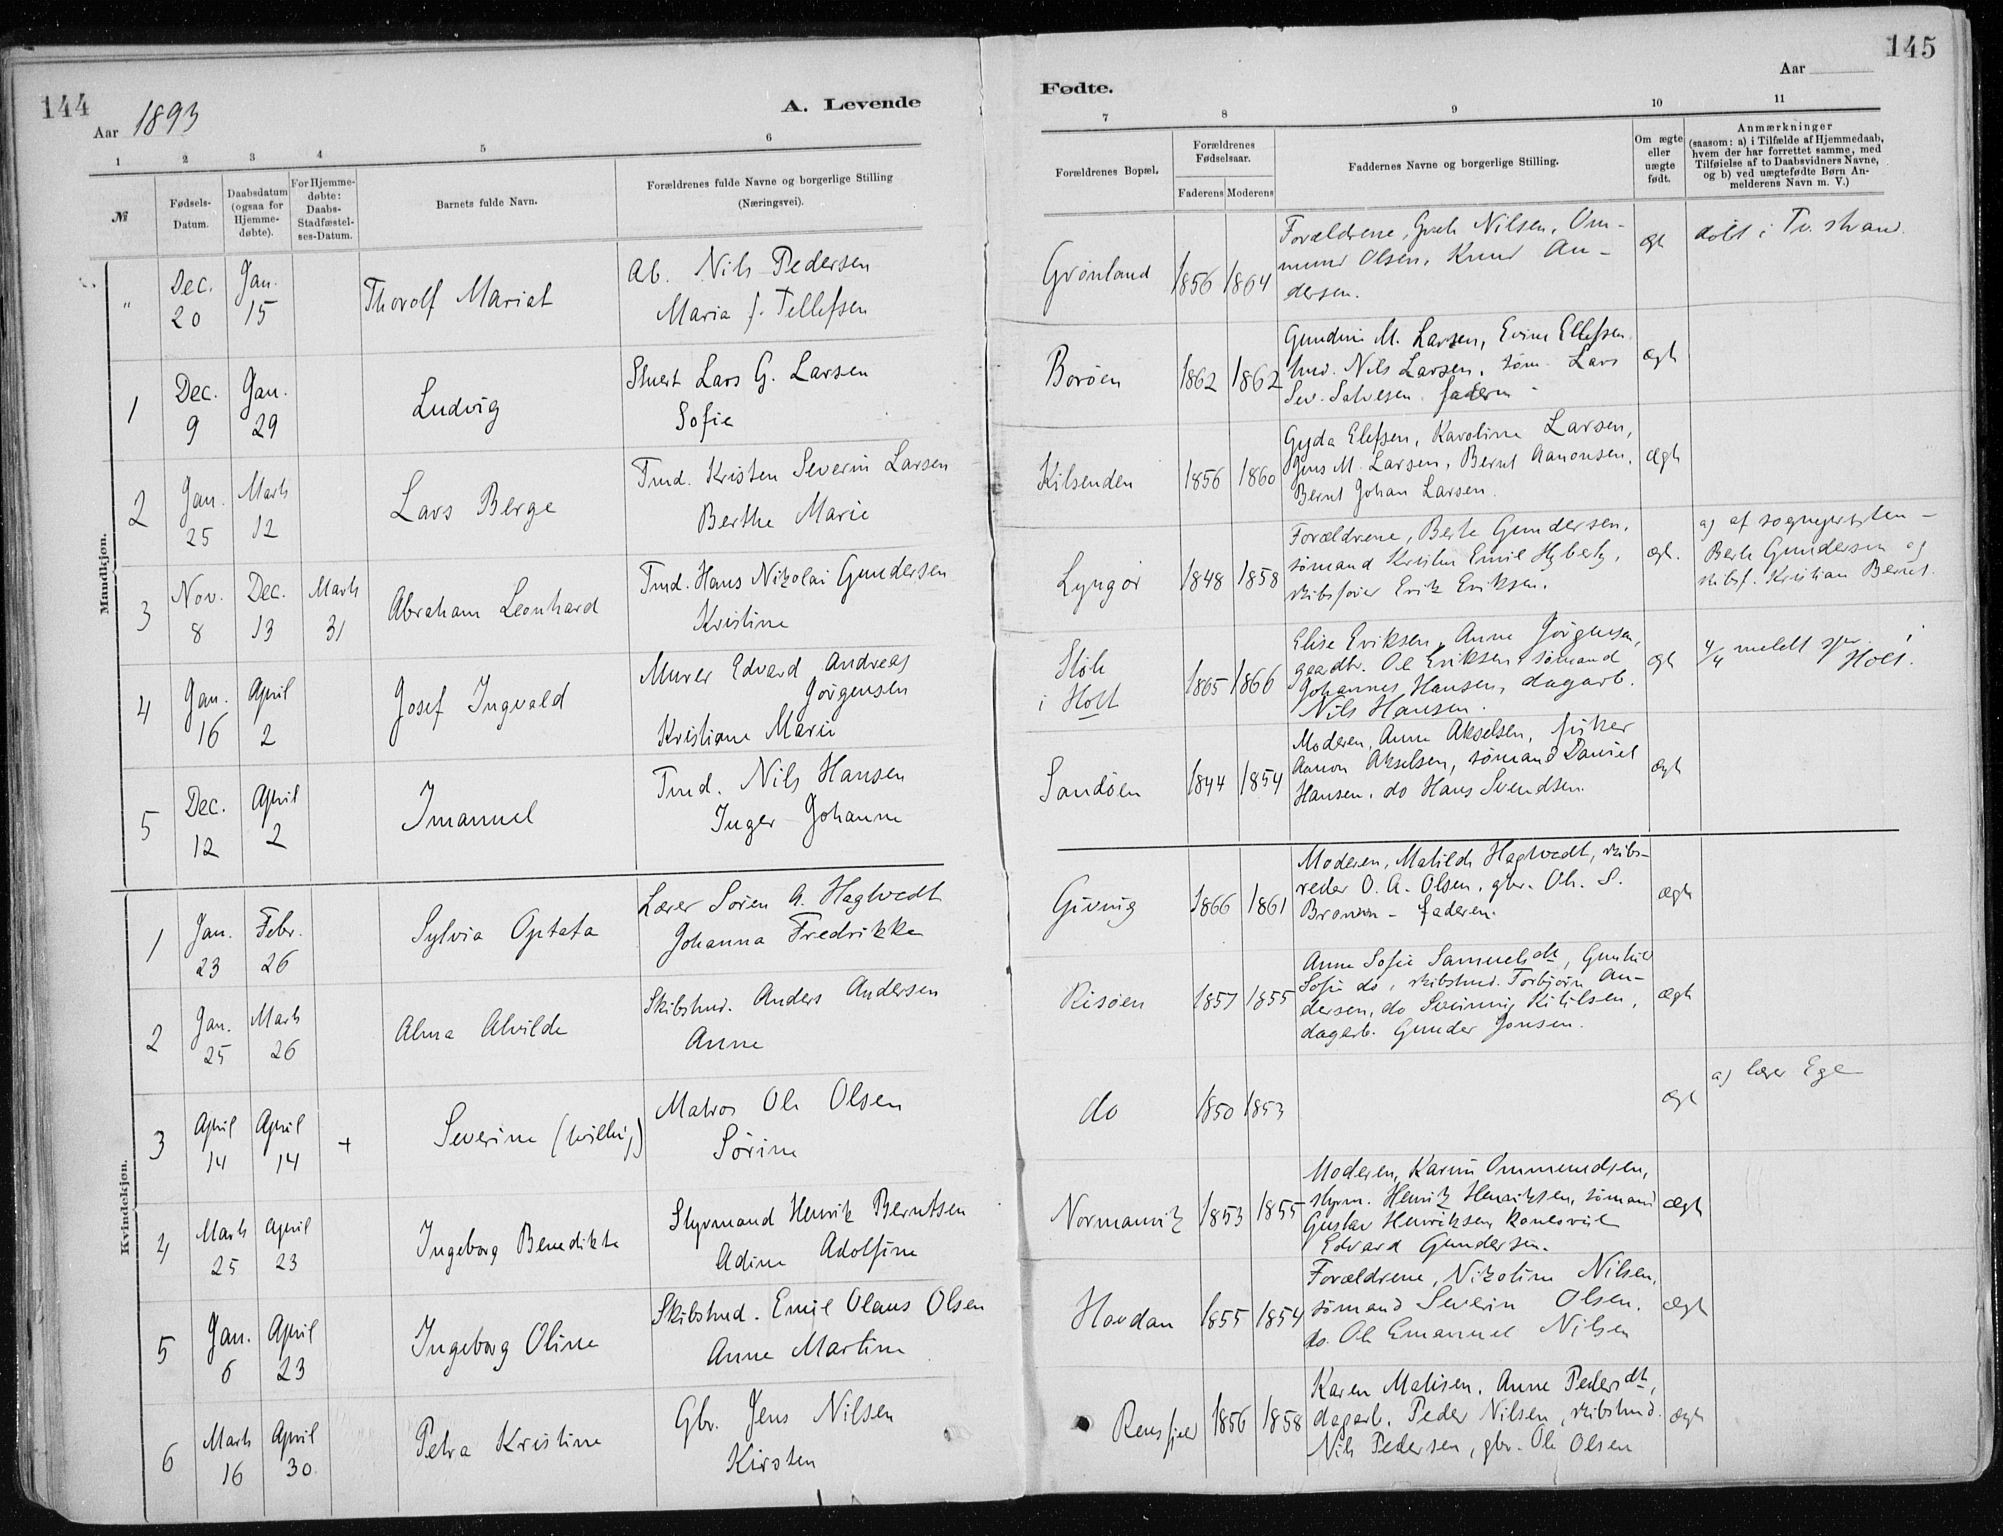 144
Aar 1893
A. Levende
1 2 3 4 5 6
№
Fødsels-Datum.
Daabsdatum (ogsaa for Hjemme-døbte).
For Hjemme-døbte: Daabs-Stadfæstel-ses-Datum.
Barnets fulde Navn.
Forældrenes fulde Navne og borgerlige Stilling
(Næringsvei).
Mandkjøn.
" Dec. 20 Jan. 15 Thorolf Mariat
Ab. Nils Pedersen
Maria f. Tellefsen
1 Dec. 9 Jan. 29 Ludvig
Lars G. Larsen
Sofie
2 Jan. 25 Marts 12 Lars Berge
Tmd. Kristen Severin Larsen
Berthe Marie
3 Nov. 8 Dec. 13 Marts 31 Abraham Leonhard
Tmd. Hans Nikolai Gundersen
Kristine
4 Jan. 16 April 2 Josef Ingvald
Murer Edvard Andreas
Jørgensen
Kristiane Marie
5 Dec. 12 April 2 Imanuel
Tmd. Nils Hansen
Inger Johanne
Kvindekjøn.
1 Jan. 23 Febr. 26 Sylvia Optata
Lærer Søren A. Hagtvedt
Johanna Fredrikke
2 Jan. 25 Marts 26 Alma Alvilde
Skibstmd. Anders Andersen
Anne
3 April 14 April 14 + Severine (tvilling)
Matros Ole Olsen
Sørine
4 Marts 25 April 23 Ingeborg Benedikte
Styrmand Henrik Berntsen
Adine Adolfine
5 Jan. 6 April 23 Ingeborg Oline
Skibstmd. Emil Olaus Olsen
Anne Martine
6 Marts 16 April 30 Petra Kristine
Gbr. Jens Nilsen
Kirsten
145
Aar
Fødte.
7 8 9 10 11
Forældrenes Bopæl.
Forældrenes Fødselsaar.
Faderens Moderens
Faddernes Navne og borgerlige Stilling.
Om ægte eller uægte født.
Anmærkninger
(saasom: a) i Tilfælde af Hjemmedaab,
hvem der har forrettet samme, med
Tilføielse af to Daabsvidners Navne,
og b) ved uægtefødte Børn An-
melderens Navn m. V.)
Grønland 1856 1864
Forældrene, Nilsen, Om-
mund Olsen, Knud An-
dersen.
ægt
døbt i Tv.strand.
Borøen 1862 1862
Gundine M. Larsen, Evine Ellefsen
tmd. Nils Larsen, søm. Lars
Sev. Salvesen. faderen
ægte
Kilsenden 1856 1860
Gyda Elefsen, Karoline Larsen,
Jens M. Larsen, Bernt Aanonsen,
Bernt Johan Larsen.
ægte
Lyngør 1848 1858
Forældrene, Berte Gundersen,
sømand Kristen Emil
skibsfører Erik Eriksen.
ægt.
a) af
Berte Gundersen og
skibsf. Kristian Bernt.
i Holt 1865 1866
Elise Eriksen, Anne Jørgensen,
gaardbr. Ole Eriksen, sømand
Johannes Hansen, dagarb.
Nils Hansen.
ægt
4/4 meldt spr. i
Holt.
Sandøen 1844 1854
Moderen, Anne Akselsen, fisker
Aanon Akselsen, sømand Daniel
Hansen, do Hans Svendsen.
ægt
Giving 1866 1861
Moderen, Matilde Hagtvedt, skibs-
reder O. A. Olsen, gbr. Ole S.
faderen.
ægte
Risøen 1857 1855
Anne Sofie Samuelsdtr, Gunhild
Sofie do, skibstmd. Torbjørn An-
dersen, do Kittilsen,
dagarb. Gunder Jonsen.
ægte
do 1850 1853
ægt
a) lærer Ege
Normanvik 1853 1855
Moderen, Karine Ommundsen,
styrm. Henrik Henriksen, sømand
Gustav Henriksen,
Edvard Gundersen.
ægte
Hovdan 1855 1854
Forældrene, Nikoline Nilsen,
sømand Severin Olsen,
do. Ole Emanuel Nilsen
ægte
Rensfjeld 1856 1858
Karen Matisen, Anne Pedersdtr,
dagarb. Peder Nilsen, skibstmd.
Nils Pedersen, gbr. Ole Olsen
ægte